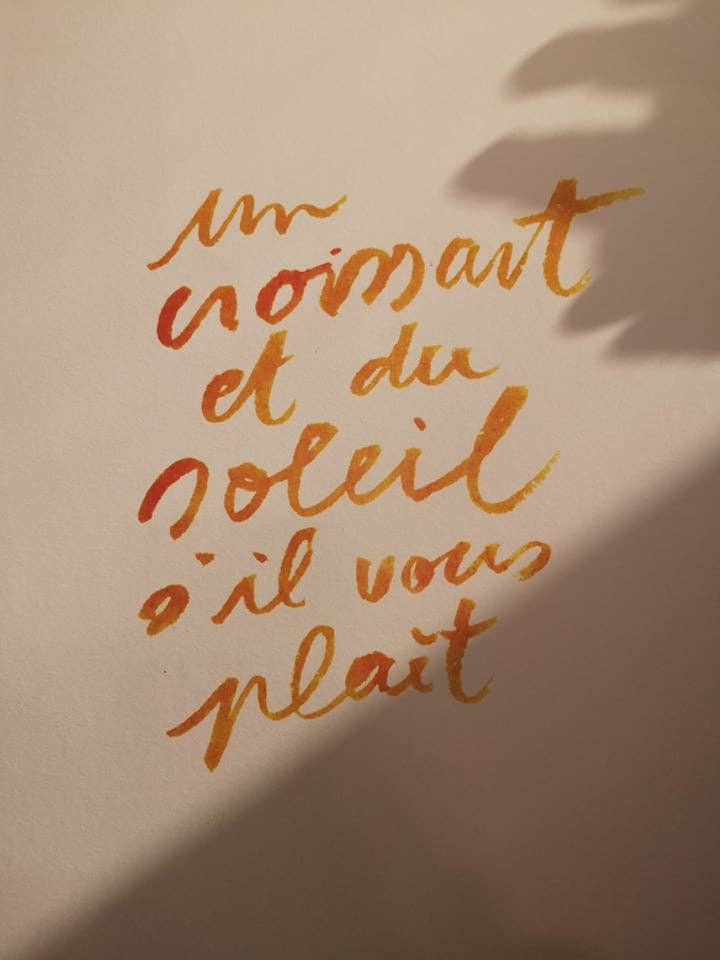 un
croissant
et du
soleil
s'il vous
plaît